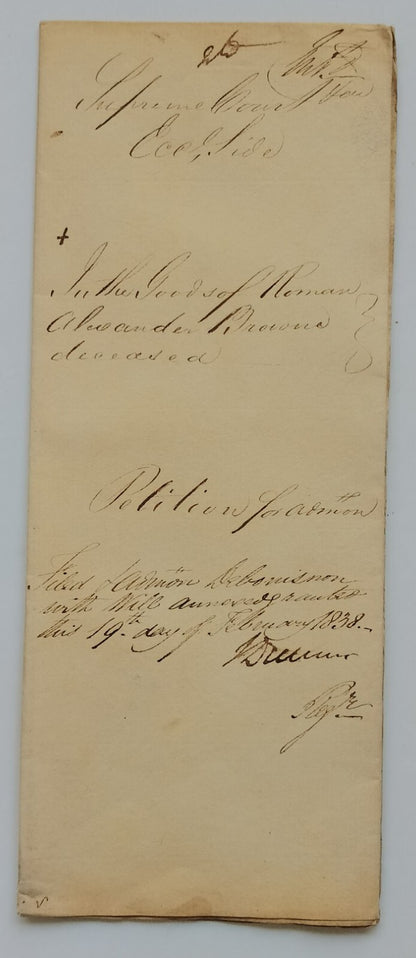 Supreme Court
Eccl. Side
+
In the Goods of Roman
Alexander Browne
deceased
Petition for admōn
Filed & admōn De bonis non
with Will annexed granted
this 19th day of February 1838.
Regr